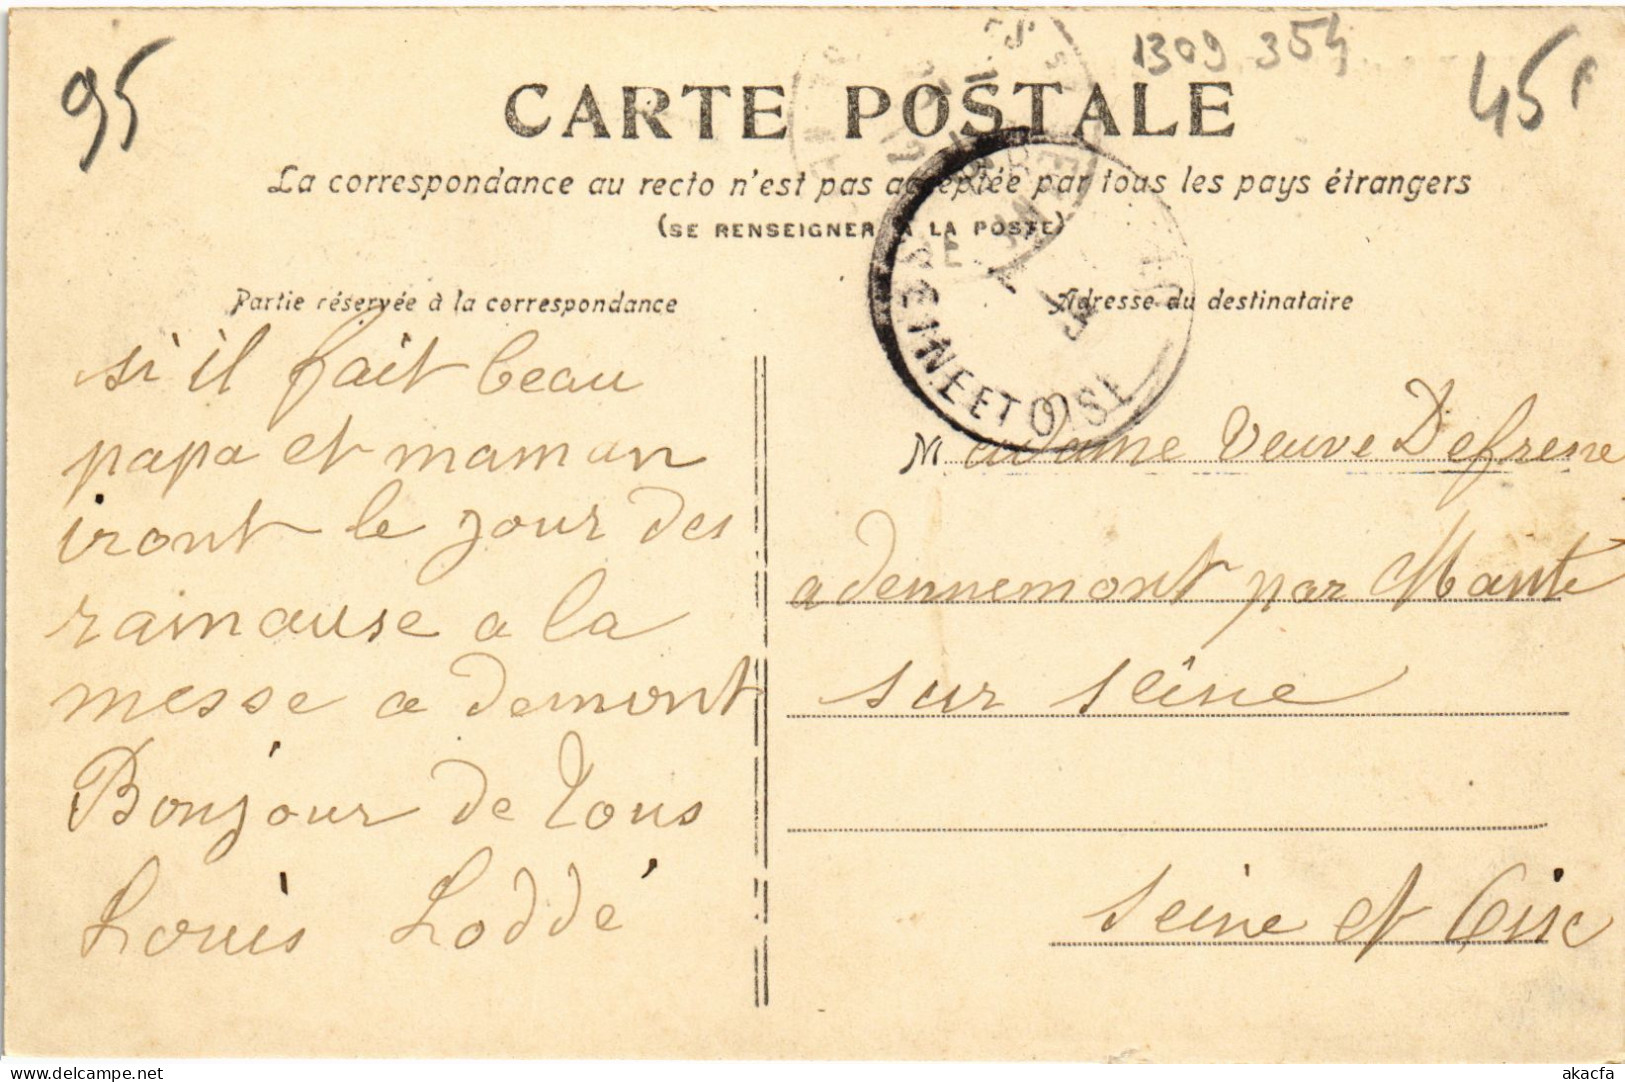 95
1309 354
45
CARTE POSTALE
La correspondance au recto n'est pas acceptée par tous les pays étrangers
(SE RENSEIGNER A LA POSTE)
Partie réservée à la correspondance
Adresse du destinataire
SEINE ET OISE
si il fait beau
papa et maman
iront le jour des
ramause a la
messe a demont
Bonjour de Tous
Louis Loddé
Madame Veuve Defresne
a dennemont par Mante
sur seine
Seine et Oise
akacfa